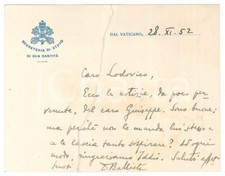 SEGRETERIA DI STATO
DI SUA SANTITÀ
DAL VATICANO, 28. XI. 52
Caro Lodovico,
Ecco le notizie, da poco per-
venute, del caro Giuseppe. Sono buone;
ma perché non le manda lui stesso
e le lascia tanto sospirare? Ad ogni
modo, ringraziamo Iddio. Saluti affet-
tuosi